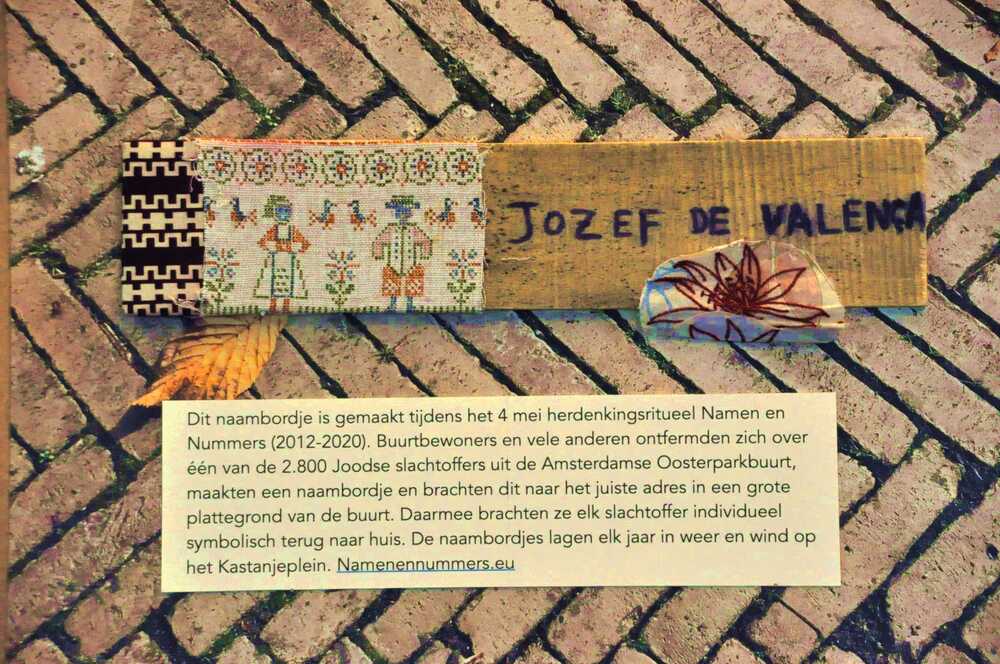 JOZEF DE VALENÇA
Dit naambordje is gemaakt tijdens het 4 mei herdenkingsritueel Namen en
Nummers (2012-2020). Buurtbewoners en vele anderen ontfermden zich over
één van de 2.800 Joodse slachtoffers uit de Amsterdamse Oosterparkbuurt,
maakten een naambordje en brachten dit naar het juiste adres in een grote
plattegrond van de buurt. Daarmee brachten ze elk slachtoffer individueel
symbolisch terug naar huis. De naambordjes lagen elk jaar in weer en wind op
het Kastanjeplein. Namenennummers.eu